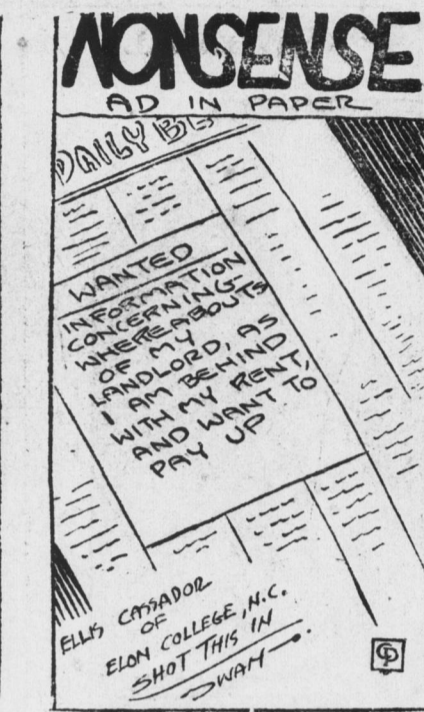 NONSENSE
AD IN PAPER
DAILY
WANTED
INFORMATION
CONCERNING
WHEREABOUTS
OF MY
LANDLORD, AS
I AM BEHIND
WITH MY RENT,
AND WANT TO
PAY UP
ELLIS CASSADOR
OF
ELON COLLEGE, N.C.
SHOT THIS IN
DWAH